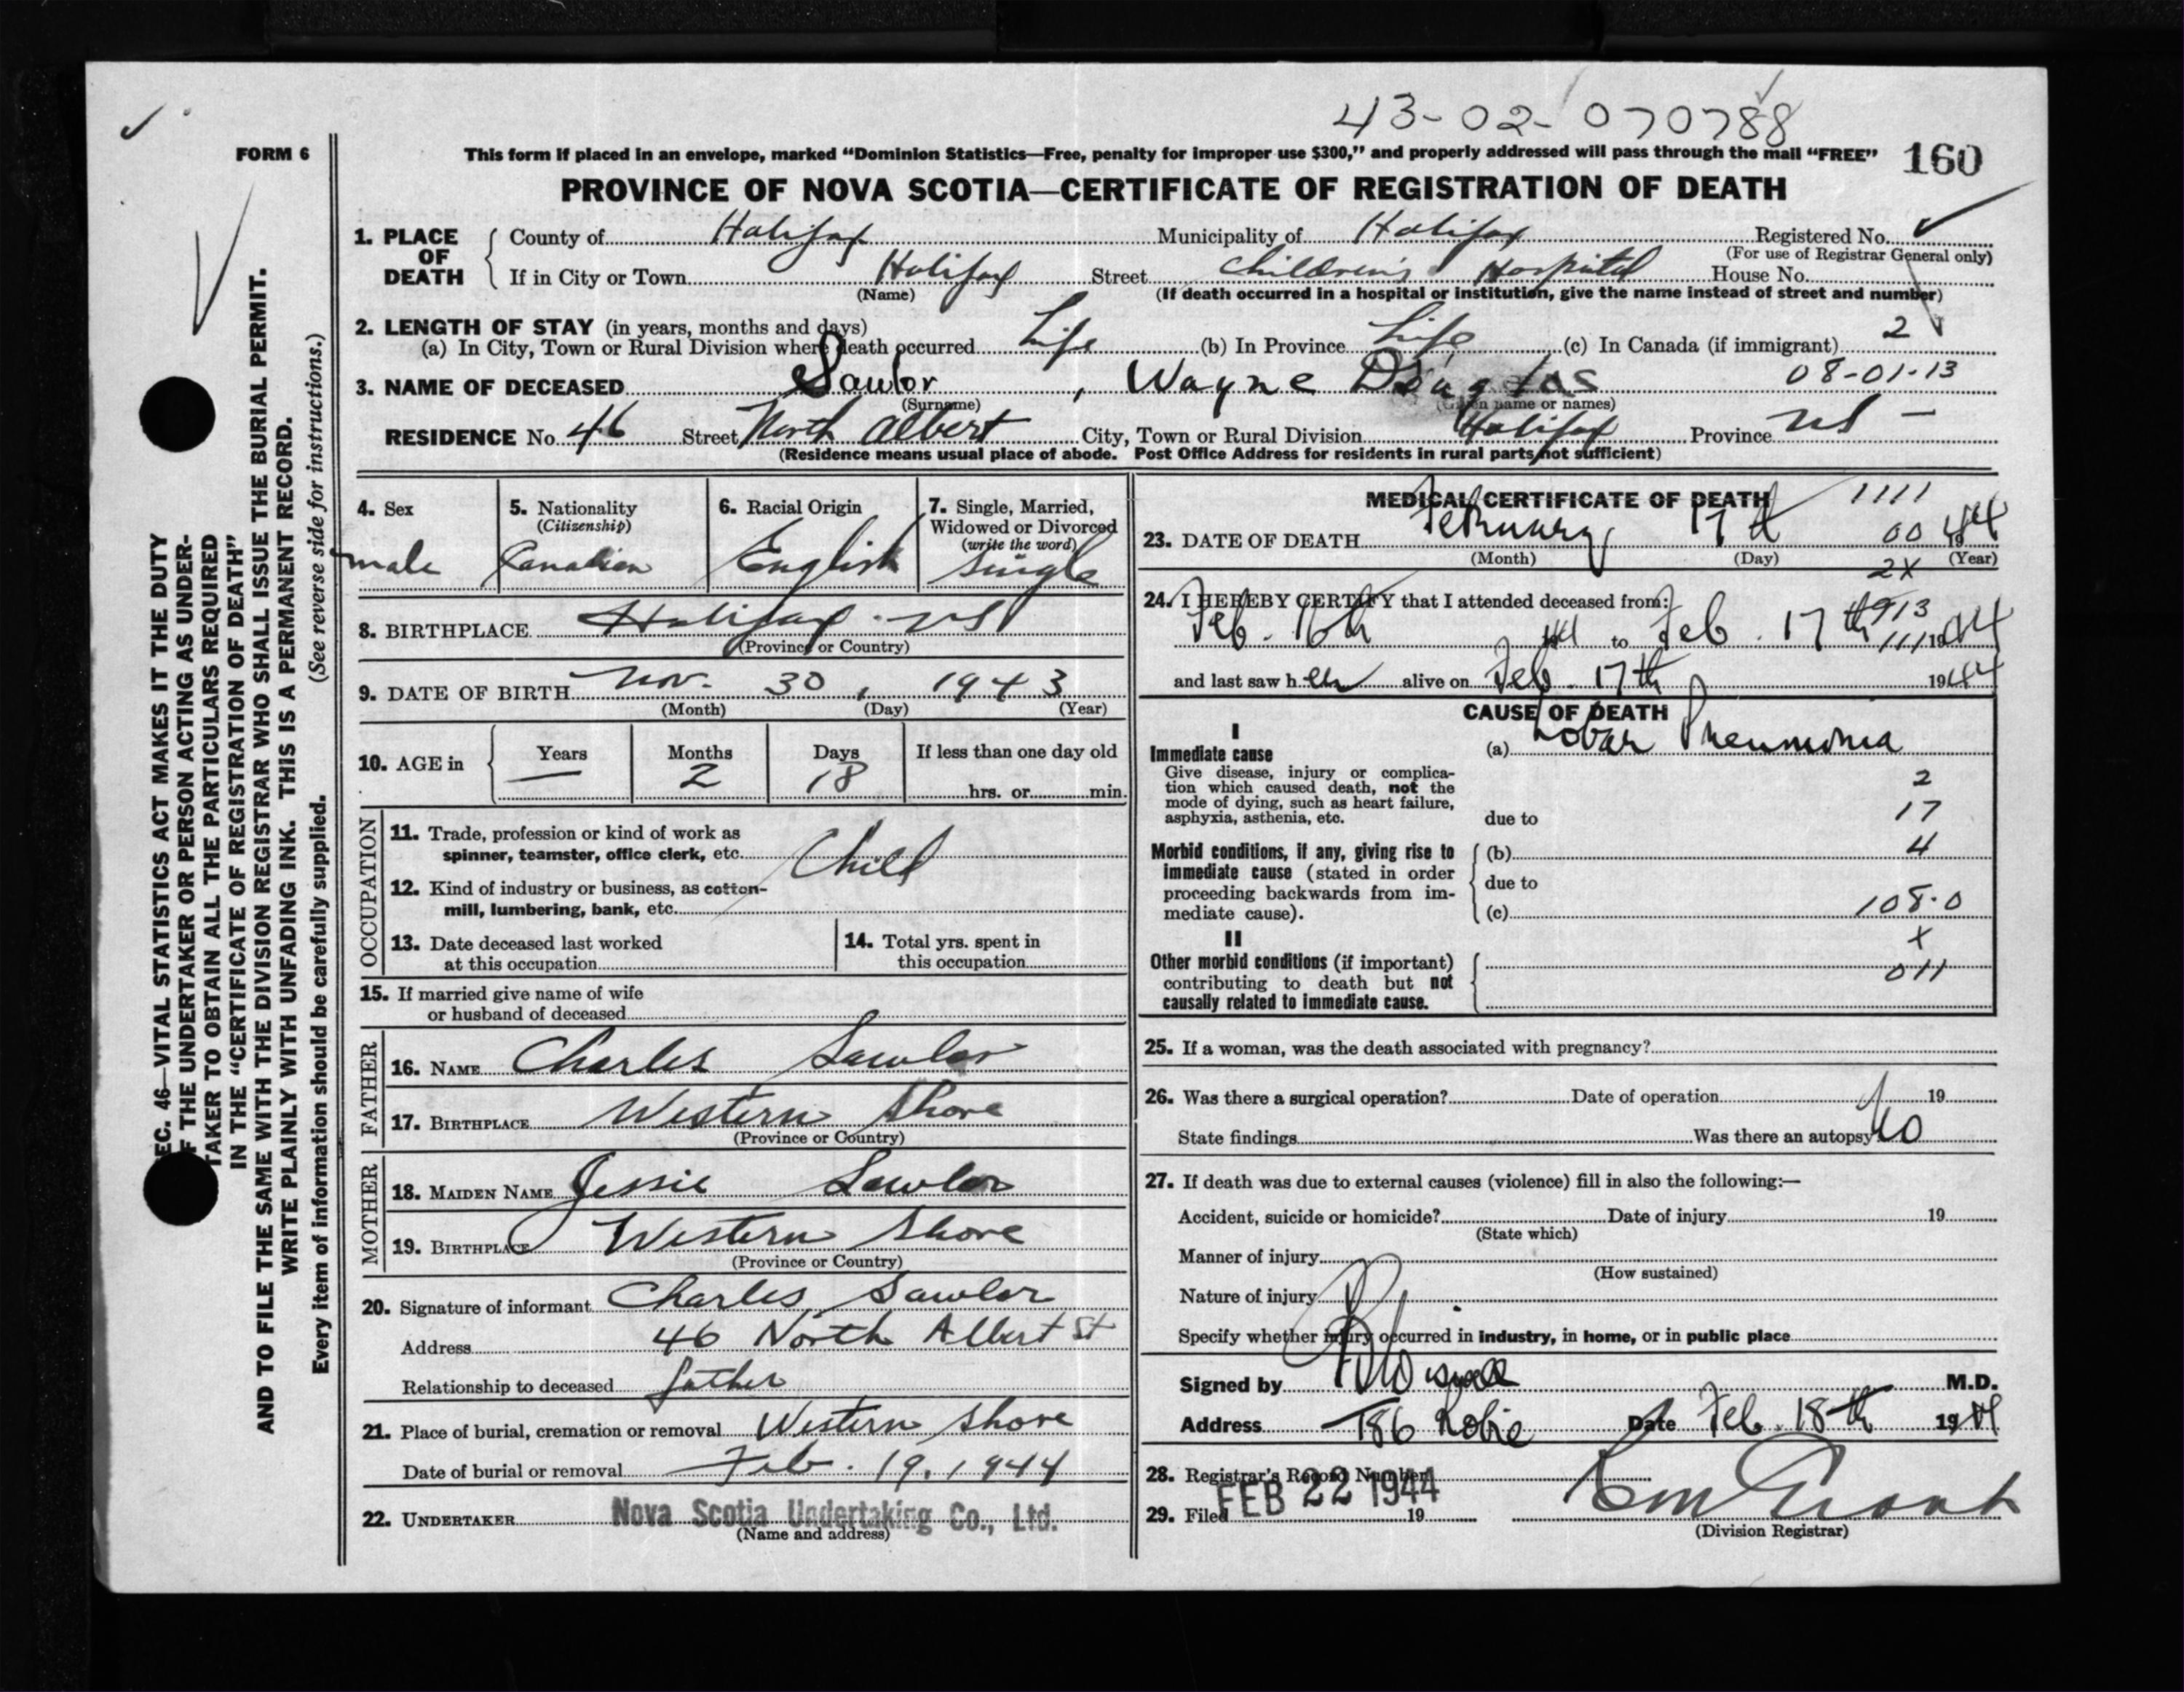 43-02-070788
FORM 6
This form if placed in an envelope, marked “Dominion Statistics—Free, penalty for improper use $300,” and properly addressed will pass through the mail “FREE” 160
PROVINCE OF NOVA SCOTIA—CERTIFICATE OF REGISTRATION OF DEATH
1. PLACE OF DEATH County of Halifax Municipality of Halifax Registered No.
(For use of Registrar General only)
If in City or Town Halifax Street Children's Hospital House No.
(Name) (If death occurred in a hospital or institution, give the name instead of street and number)
2. LENGTH OF STAY (in years, months and days) 2
(a) In City, Town or Rural Division where death occurred Life (b) In Province Life (c) In Canada (if immigrant)
08-01-13
3. NAME OF DECEASED Sawlor, Wayne Douglas
(Surname) (Given name or names)
RESIDENCE No. 46 Street North Albert City, Town or Rural Division Halifax Province NS —
(Residence means usual place of abode. Post Office Address for residents in rural parts not sufficient)
4. Sex male
5. Nationality (Citizenship) Canadian
6. Racial Origin English
7. Single, Married, Widowed or Divorced (write the word) Single
8. BIRTHPLACE Halifax. NS
(Province or Country)
9. DATE OF BIRTH Nov. 30, 1943
(Month) (Day) (Year)
10. AGE in Years — Months 2 Days 18 If less than one day old
hrs. or min.
OCCUPATION
11. Trade, profession or kind of work as
spinner, teamster, office clerk, etc. Child
12. Kind of industry or business, as cotton-
mill, lumbering, bank, etc.
13. Date deceased last worked
at this occupation
14. Total yrs. spent in
this occupation
15. If married give name of wife
or husband of deceased
FATHER
16. NAME Charles Sawlor
17. BIRTHPLACE Western Shore
(Province or Country)
MOTHER
18. MAIDEN NAME Jessie Sawlor
19. BIRTHPLACE Western Shore
(Province or Country)
20. Signature of informant Charles Sawlor
Address 46 North Albert St
Relationship to deceased father
21. Place of burial, cremation or removal Western Shore
Date of burial or removal Feb. 19, 1944
22. UNDERTAKER Nova Scotia Undertaking Co., Ltd.
(Name and address)
MEDICAL CERTIFICATE OF DEATH 1111
23. DATE OF DEATH February 17th 00 1944
(Month) (Day) (Year)
2X
24. I HEREBY CERTIFY that I attended deceased from:
913
Feb. 16th 44 to Feb. 17th 111 1944
and last saw h alive on Feb. 17th 1944
CAUSE OF DEATH
I
Immediate cause (a) Lobar Pneumonia
Give disease, injury or complica-
tion which caused death, not the
mode of dying, such as heart failure,
asphyxia, asthenia, etc. due to
2
17
4
Morbid conditions, if any, giving rise to (b)
immediate cause (stated in order due to
proceeding backwards from im-
mediate cause). (c) 108.0
II
X
Other morbid conditions (if important) 011
contributing to death but not
causally related to immediate cause.
25. If a woman, was the death associated with pregnancy?
26. Was there a surgical operation? Date of operation 19
State findings Was there an autopsy No
27. If death was due to external causes (violence) fill in also the following:—
Accident, suicide or homicide? Date of injury 19
(State which)
Manner of injury
(How sustained)
Nature of injury
Specify whether injury occurred in industry, in home, or in public place
Signed by M.D.
Address 186 Robie Date Feb. 18th 1944
28. Registrar's Record Number
29. Filed FEB 22 1944 19
(Division Registrar)
SEC. 46—VITAL STATISTICS ACT MAKES IT THE DUTY
OF THE UNDERTAKER OR PERSON ACTING AS UNDER-
TAKER TO OBTAIN ALL THE PARTICULARS REQUIRED
IN THE “CERTIFICATE OF REGISTRATION OF DEATH”
AND TO FILE THE SAME WITH THE DIVISION REGISTRAR WHO SHALL ISSUE THE BURIAL PERMIT.
WRITE PLAINLY WITH UNFADING INK. THIS IS A PERMANENT RECORD.
Every item of information should be carefully supplied. (See reverse side for instructions.)